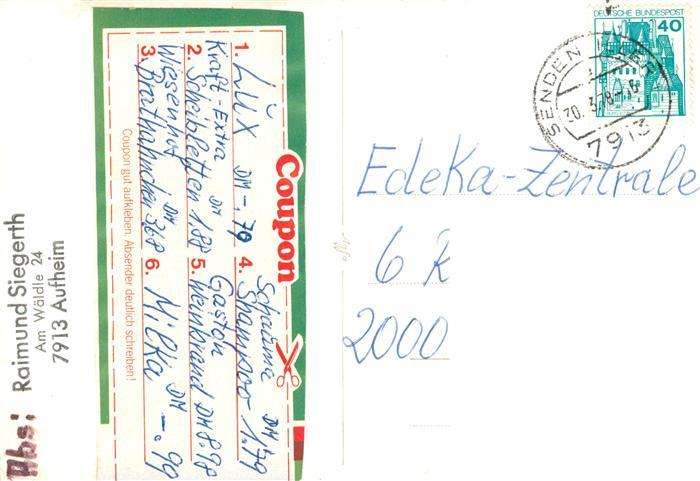 Abs: Raimund Siegerth
Am Wäldle 24
7913 Aufheim
Coupon
1. Lux DM -.79
Kraft-Extra DM
2. Scheibletten 1,88
Wiesenhof DM
3. Brathähnchen 3.68
Schauma DM
4. Shampoo 1.79
Gaston
5. Weinbrand DM 8.98
6. Milka DM -.99
Coupon gut aufkleben. Absender deutlich schreiben!
DEUTSCHE BUNDESPOST
40
SENDEN
7913
Edeka-Zentrale
6 R
2000